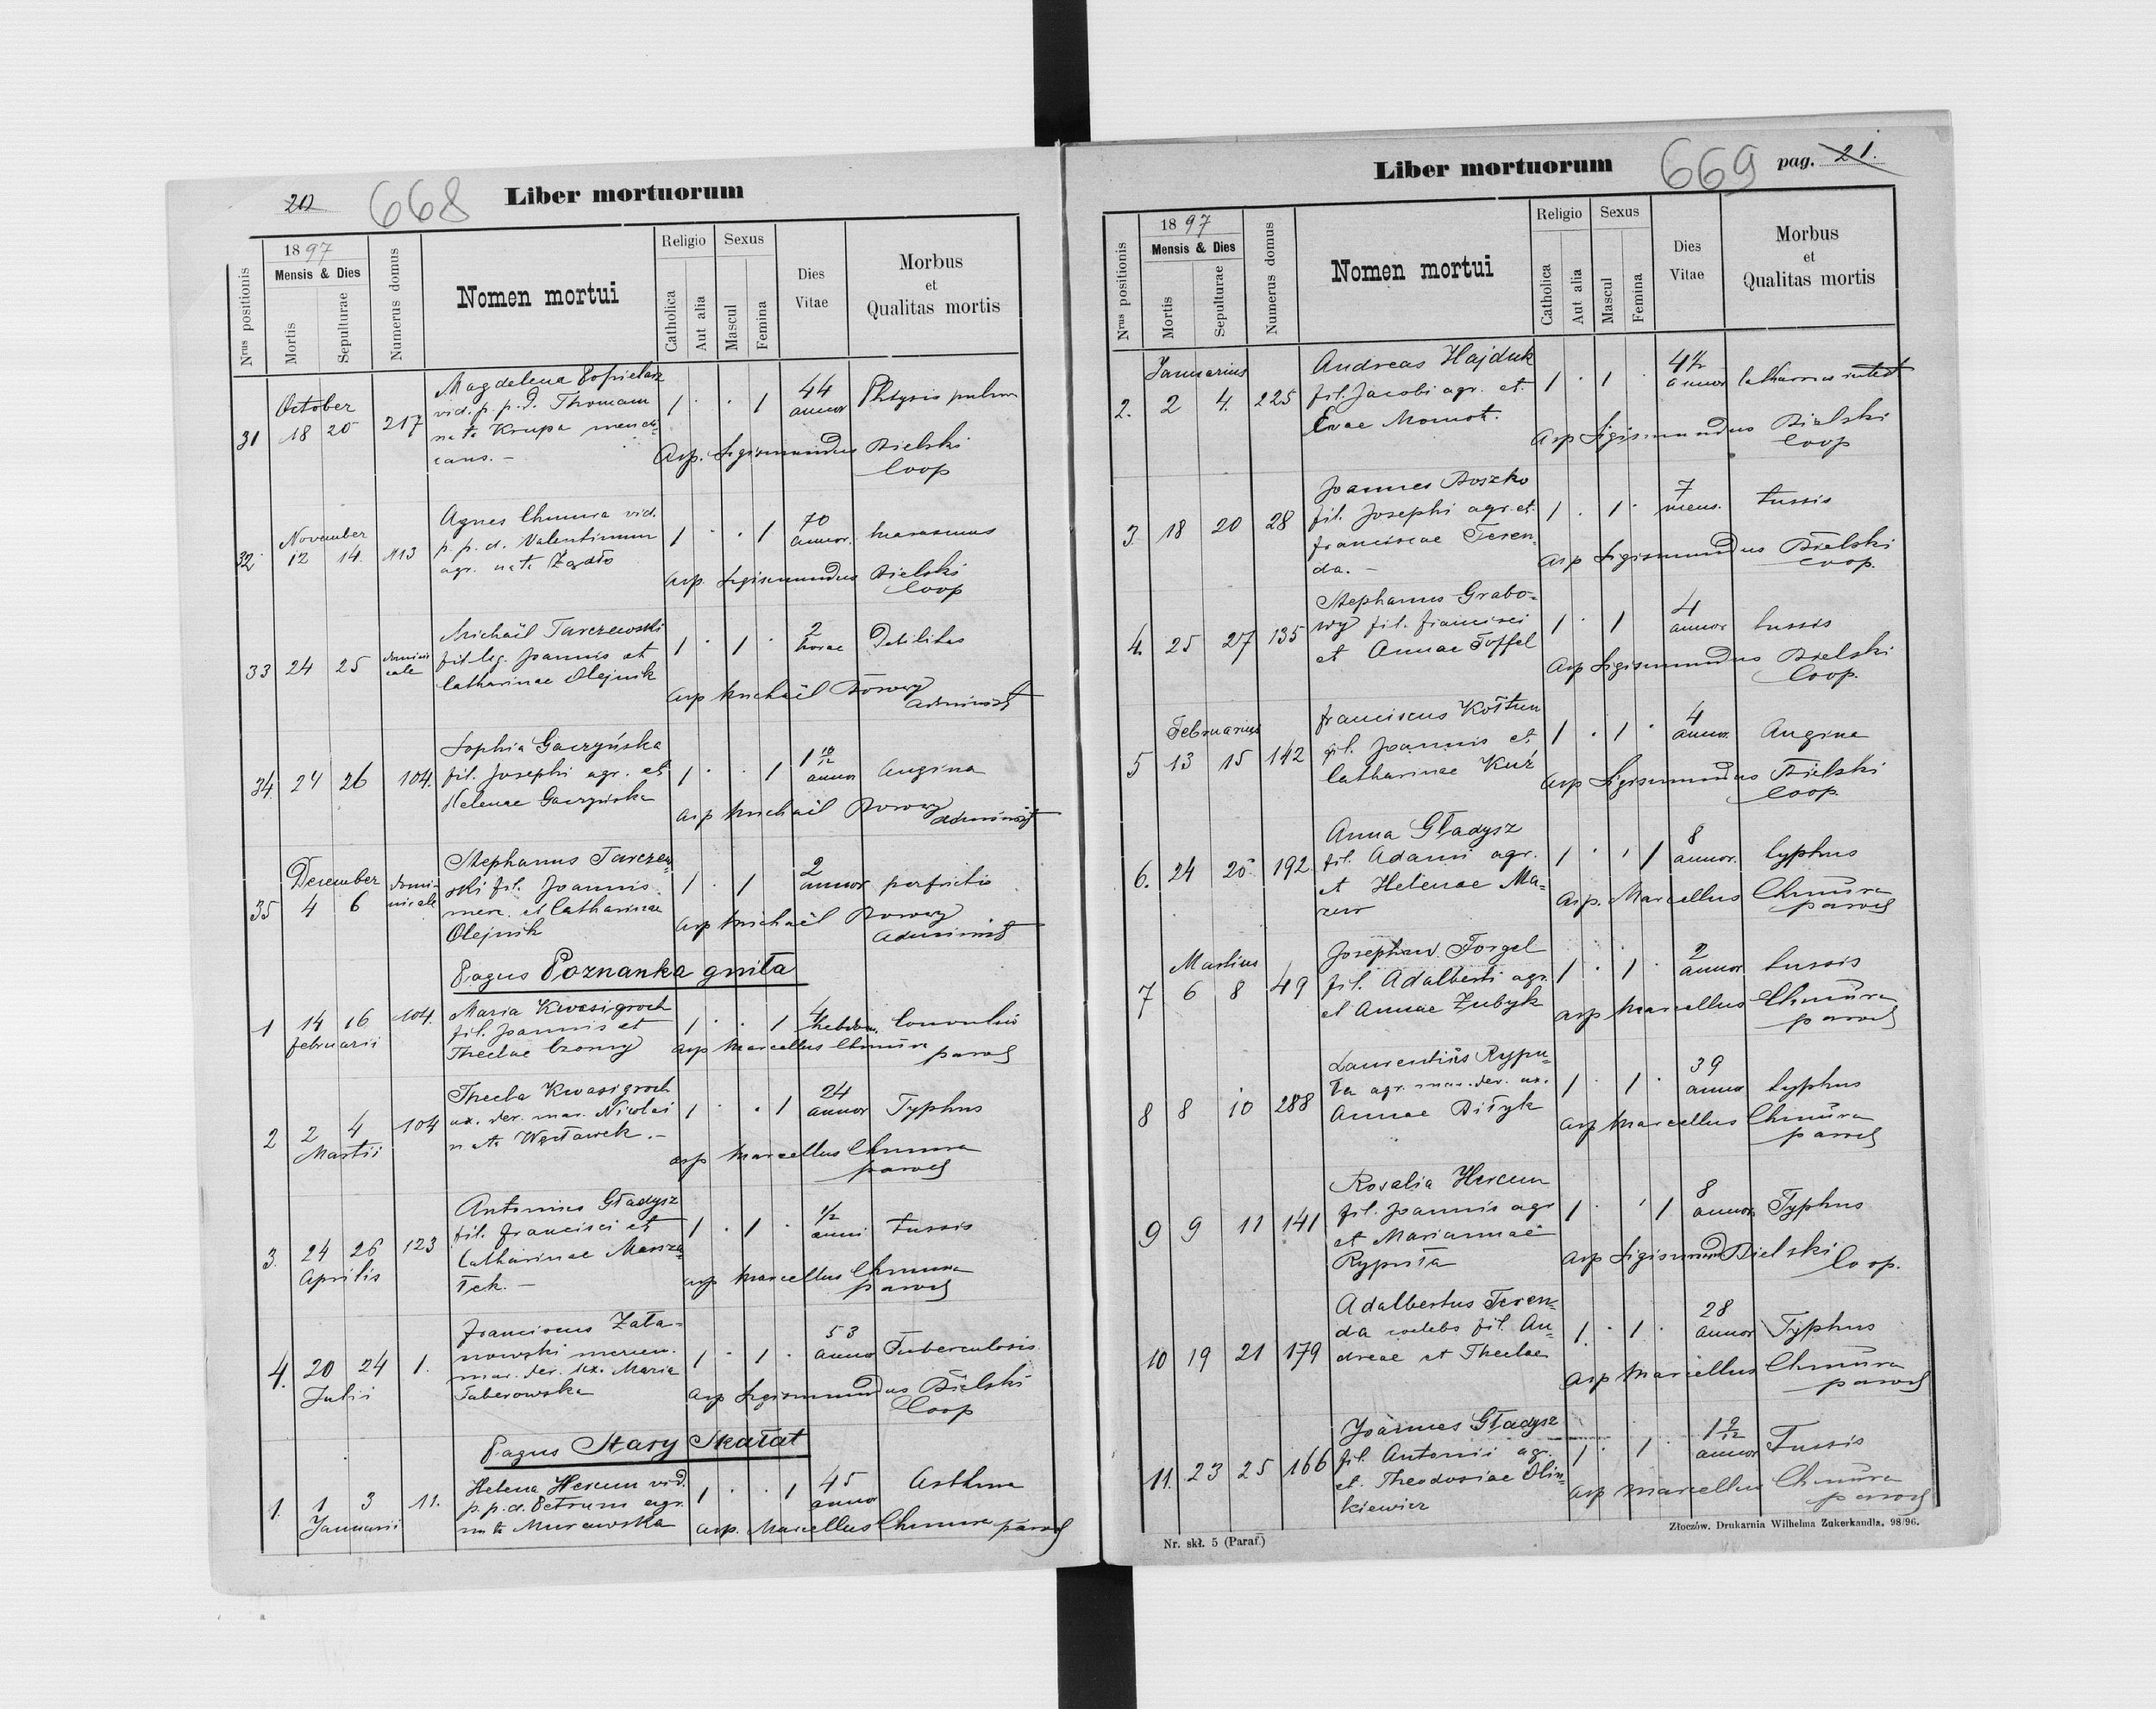 20 668 Liber mortuorum
Nrus positionis
1897
Mensis & Dies
Mortis
Sepulturae
Numerus domus
Nomen mortui
Religio
Catholica
Aut alia
Sexus
Mascul
Femina
Dies
Vitae
Morbus
et
Qualitas mortis
October
31 18 20 217
Magdalena Popielarz
vid. p. p. d. Thomam
nata Krupa
cans. –
1 · · 1 44 annor Phtysis pulm
Asp. Sigismundus Bielski
Coop
November
32 12 14 113
Agnes Chmura vid.
p. p. d. Valentinum
agr. nata Zgadło
1 · · 1 70 annor. marasmus
Asp. Sigismundus Bielski
Coop
33 24 25 domini
cale
Michaël Tarczewski
fil. leg. Joannis et
Catharinae Olejnik
1 · 1 · 2 horae Debilitas
Asp Michaël Borowy
Administ
34. 24 26 104.
Sophia Gaczyńska
fil. Josephi agr. et
Helenae Gaczyńska
1 · · 1 1 10/12 annor Angina
Asp Michaël Borowy
Administ
December
35 4 6 domi-
nicale
Stephanus Tarczew
ski fil. Joannis
merc. et Catharinae
Olejnik
1 · 1 2 annor perfrictio
Asp Michaël Borowy
Administ
Pagus Poznanka gniła
1 14 16 104.
februarii
Maria Kwasigroch
fil. Joannis et
Theclae Czorny
1 · · 1 4 hebdom. Convulsio
Asp Marcellus Chmura
paroch
2 2 4 104
Martii
Thecla Kwasigroch
ux. der. mar. Nicolai
nata Węcławek. –
1 · · 1 24 annor Typhus
Asp Marcellus Chmura
paroch
3. 24 26 123
Aprilis
Antonius Gładysz
fil. Francisci et
Catharinae Marsza-
łek. –
1 · 1 · 1/2 anni Tussis
Asp Marcellus Chmura
paroch
4. 20 24 1.
Julii
Franciscus Zała-
nowski mercen.
mar. der. ux. Maria
Taberowska
1 · 1 · 53 annor Tuberculosis
Asp Sigismundus Bielski
Coop
Pagus Stary Skałat
1. 1 3 11.
Januarii
Helena Hercun vid.
p. p. d. Petrum agr.
nata Murawska
1 · · 1 45 annor Asthma
Asp. Marcellus Chmura paroch
Liber mortuorum 669 pag. 21.
Nrus positionis
1897
Mensis & Dies
Mortis
Sepulturae
Numerus domus
Nomen mortui
Religio
Catholica
Aut alia
Sexus
Mascul
Femina
Dies
Vitae
Morbus
et
Qualitas mortis
Januarius
2. 2 4. 225
Andreas Hajduk
fil. Jacobi agr. et.
Evae Momot.
1 · 1 · 4½ annor Catharrus intest
Asp Sigismundus Bielski
Coop
3. 18 20 28
Joannes Boszko
fil. Josephi agr. et.
Franciscae Teren-
da. –
1 · 1 · 7 mens. tussis
Asp Sigismundus Bielski
Coop.
4. 25 27 135
Stephanus Grabo-
wy fil. Francisci
et Annae Toffel
1 · 1 4 annor tussis
Asp Sigismundus Bielski
Coop.
Februarius
5 13 15 142
Franciscus Kołtun
fil. Joannis et
Catharinae Kuź
1 · 1 · 4 annor. Angina
Asp Sigismundus Bielski
Coop.
6. 24 25 192
Anna Gładysz
fil. Adami agr.
et Helenae Ma-
zur
1 · · 1 8 annor. typhus
Asp. Marcellus Chmura
paroch
Martius
7 6 8 49
Josephus Forgel
fil. Adalberti agr.
et Annae Zubyk
1 · 1 · 2 annor tussis
Asp Marcellus Chmura
paroch
8 8 10 288
Laurentius Rypu-
ła agr. mar. der. ux.
Annae Biłyk
1 · 1 · 39 annor typhus
Asp Marcellus Chmura
paroch
9 9 11 141
Rosalia Hercun
fil. Joannis agr
et Mariannae
Rypuła
1 · · 1 8 annor Typhus
Asp Sigismund Bielski
Coop.
10 19 21 179
Adalbertus Teren-
da coelebs fil. An-
dreae et Theclae
1. · 1 · 28 annor Typhus
Asp Marcellus Chmura
paroch
11. 23 25 166
Joannes Gładysz
fil. Antonii agr.
et. Theodosiae Olin-
kiewicz
1 · 1 · 1 9/12 annor Tussis
Asp Marcellus Chmura
paroch
Nr. skł. 5 (Paraf.)
Złoczów. Drukarnia Wilhelma Zukerkandla. 98/96.